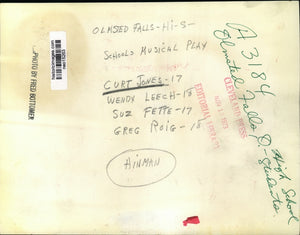 OLMSTED FALLS-Hi-S-
SCHOOLS MUSICAL PLAY
CURT JONES-17
WENDY LEECH-18
SUZ FETTE-17
GREG ROIG-18
HINMAN
PHOTO BY FRED BOTTOMER
CLEVELAND PRESS
EDITORIAL LIBRARY
A 3184
Olmsted Falls High School
Students